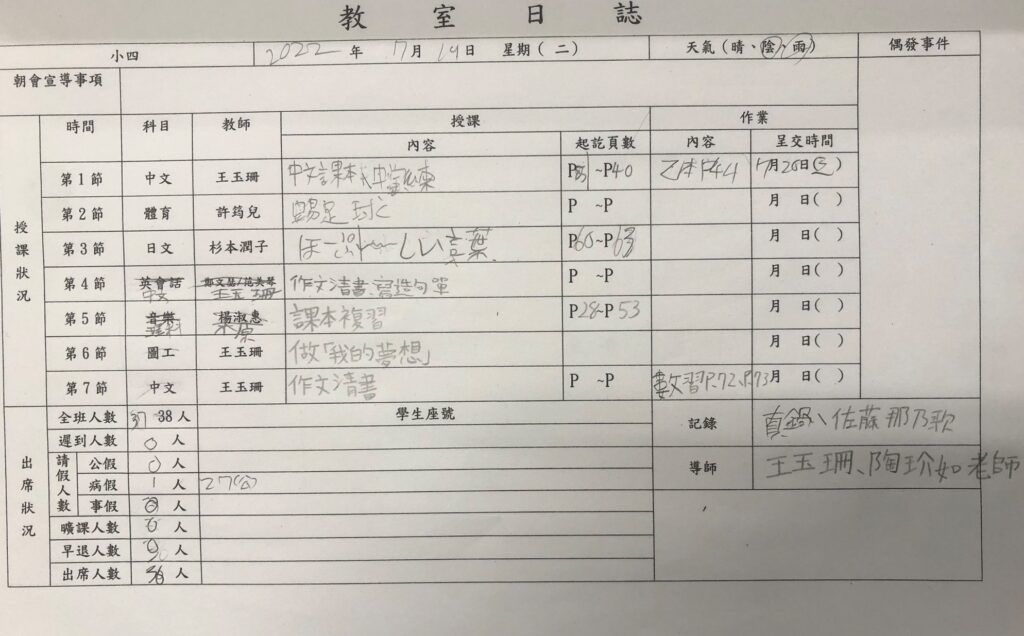 教室日誌
小四 2022年 7月19日 星期(二) 天氣(晴、陰、雨) 偶發事件
朝會宣導事項
授課狀況
時間 科目 教師 授課 作業
內容 起訖頁數 內容 呈交時間
第1節 中文 王玉珊 中文課本 P ~P40 乙本P44 7月20日( )
第2節 體育 許筠兒 踢足球 P ~P 月 日( )
第3節 日文 杉本潤子 言葉 P60~P63 月 日( )
第4節 英會話 中文 王玉珊 作文清書、寫造句單 P ~P 月 日( )
第5節 音樂 理科 楊淑惠 課本複習 P28~P53 月 日( )
第6節 圖工 王玉珊 做「我的夢想」 月 日( )
第7節 中文 王玉珊 作文清書 P ~P 數習P.72、P.73 月 日( )
出席狀況
全班人數 37 38人 學生座號 記錄 真鍋、佐藤那乃歌
遲到人數 0人
請假人數
公假 0人 導師 王玉珊、陶玠如老師
病假 1人 27
事假 0人
曠課人數 0人
早退人數 0人
出席人數 36人